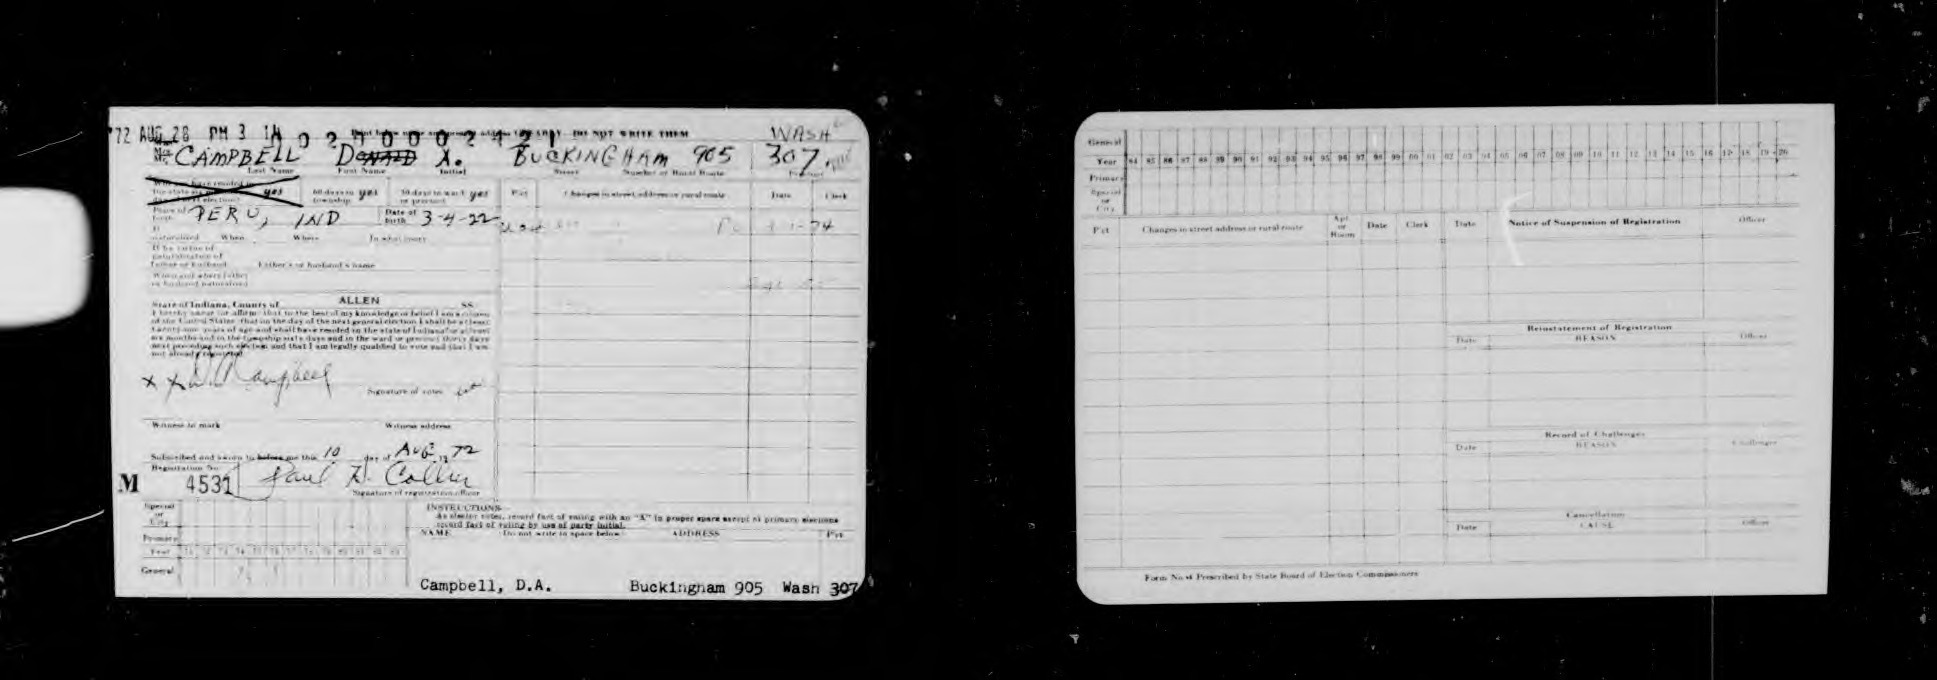 '72 AUG 28 PM 3 1
DO NOT WRITE THEM
WASH
CAMPBELL D A. BUCKINGHAM 905 307
Last Name First Name Initial Street Number or Rural Route Precinct
yes 60 days in township yes 30 days in ward or precinct yes Pct Changes in street address or rural route Date Clerk
Place of birth PERU, IND Date of birth 3-4-22
If naturalized When Where In what court
If by virtue of naturalization of father or husband Father's or husband's name
When and where father or husband naturalized
State of Indiana, County of ALLEN SS
I hereby swear (or affirm) that to the best of my knowledge or belief I am a citizen
of the United States, that on the day of the next general election I shall be at least
twenty-one years of age and shall have resided in the state of Indiana for at least
six months and in the township sixty days and in the ward or precinct thirty days
next preceding such election and that I am legally qualified to vote and that I am
not already registered
X X D A Campbell
Signature of voter
Witness to mark Witness address
Subscribed and sworn to before me this 10 day of Aug 19 72
Registration No
M 4531 Paul D. Collier
Signature of registration officer
Special or City
Primary
Year
General
INSTRUCTIONS
As elector votes, record fact of voting with an "X" in proper space except at primary elections
record fact of voting by use of party initial.
NAME Do not write in space below ADDRESS Pct
Campbell, D.A. Buckingham 905 Wash 307
General
Year 84 85 86 87 88 89 90 91 92 93 94 95 96 97 98 99 00 01 02 03 04 05 06 07 08 09 10 11 12 13 14 15 16 17 18 19 20
Primary
Special or City
Pct Changes in street address or rural route Apt or Room Date Clerk Date Notice of Suspension of Registration Officer
Reinstatement of Registration
Date REASON Officer
Record of Challenges
Date REASON Challenger
Cancellation
Date CAUSE Officer
Form No Prescribed by State Board of Election Commissioners